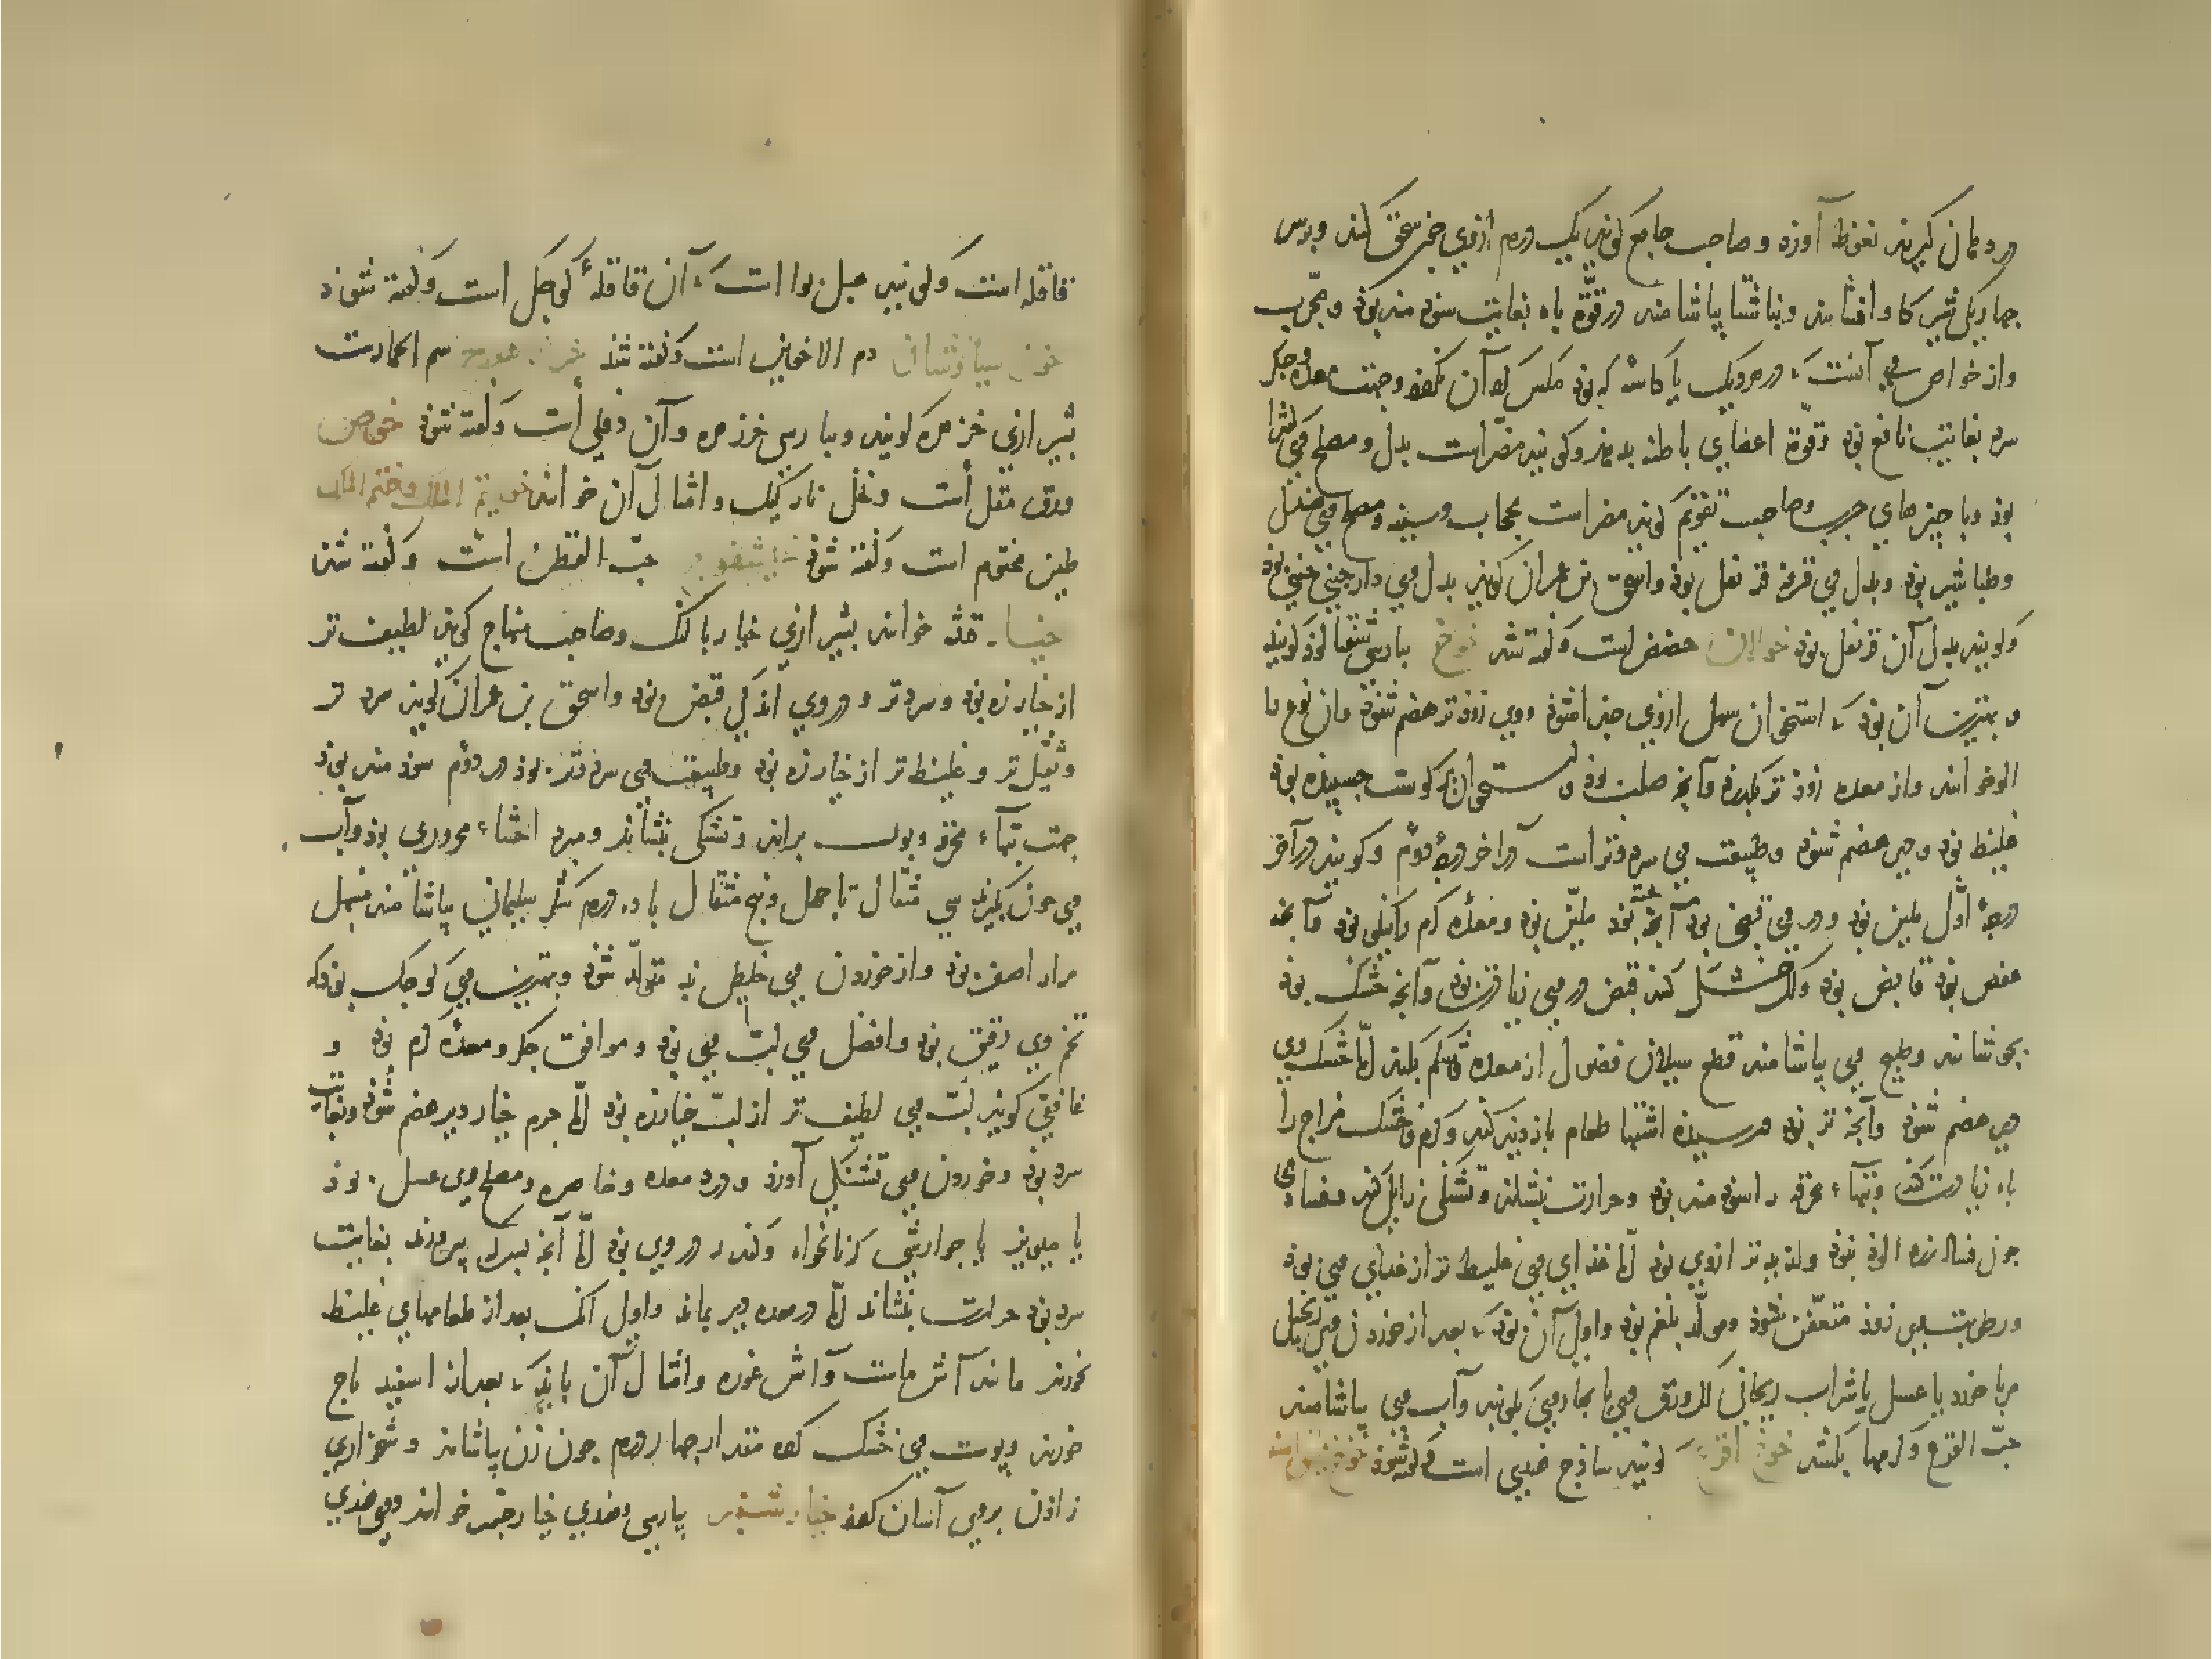 در دهان گیرند نعوظ آورد و صاحب جامع گوید یک درم ازوی چون سحق کنند و بر سر
شیر گاو افشانند و ناشتا بیاشامند در قوّة باه بغایت سودمند بود و مجرب
و از خواص وی آنست که در هر دیک یا کاسه که بود مکس کرد آن نکردد و جهت معده و جکر
سرد بغایت نافع بود و قوّة اعضای باطنه بدهد و کویند مضرّ است بدل و مصلح وی کثیرا
بود و با چیزهای چرب و صاحب تقویم کوید مضر است بحجاب و سینه و مصلح وی صندل
و طباشیر بود و بدل وی قرفه قرنفل بود و اسحق بن عمران کوید بدل وی دارچینی بود
و کویند بدل آن قرنفل بود خولان حضض است و کفته شد خوخ بپارسی شفتالود کویند
و بهترین آن بود که استخوان سهل ازوی جدا شود و وی زودتر هضم شود و آن نوع را
الو خوانند و از معده زودتر بگذرد و آنچه صلب بود و استخوان در کوشت چسبیده بود
غلیظ بود و دیر هضم شود و طبیعت وی سرد و تر است در آخر درجهٔ دوّم و کویند در آخر
درجهٔ اوّل ملین بود و در وی قبض بود آنچه پخته بود ملیّن بود و معدهٔ کرم را نیکو بود و آنچه
عفص بود قابض بود و کر خشک کنند قبض در وی زیادتر بود و آنچه خشک بود
بجوشانند و طبیخ وی بیاشامند قطع سیلان فضول از معده و شکم بکند امّا خشک وی
دیر هضم شود و آنچه تر بود و رسیده اشتها طعام بازدید کند و کرم و خشک مزاج را
باه زیادت کند و تبهاء محرقه را سودمند بود و حرارت بنشاند و تشنکی زایل کند
چون فساد زرد الود نبود و لذیذتر ازوی بود امّا غذای وی غلیظ تر از غذای وی بود
و رطوبت وی زود متعفّن شود و مولّد بلغم بود و اولی آن بود که بعد از خوردن وی زنجبیل
مربا خورد یا عسل یا شراب ریحانی اکر ورق وی یا بهار وی بکوبند و آب وی بیاشامند
حبّ القرع و کرمها بکشد خوخ اقرع کویند ساذج هندی است و کفته شود
قاقله است و کویند هیل بوا است که آن قاقلهٔ کوچک است و کفته شود
خون سیاوشان دم الاخوین است و کفته شد خر سم الحمارست
شیرازی خرزهره کویند و بپارسی خرزهره و آن دفلی است و کفته شود خوص
ورق مقل است و نخل نارکیل و امثال آن خوانند خواتیم الملک و ختم الملک
طین مختوم است و کفته شود خیسفوج حبّ القطن است و کفته شد
خیار قثد خوانند بشیرازی خیار بالنک و صاحب منهاج کوید لطیف تر
از خیارزه بود و سردتر و در وی اندکی قبض بود و اسحق بن عمران کوید سرد تر
و ثقیل تر و غلیظ تر از خیارزه بود و طبیعت وی سرد و تر بود در دوّم سودمند بود
جهت تبهاء محرقه و بول براند و تشنکی بنشاند و مبرد احشاء محروری بود و آب
وی چون بکیرند سی مثقال تا چهل و پنج مثقال با ده درم شکر سلیمانی بیاشامند مسهل
مرار اصفر بود و از خوردن وی خلطی بد متولّد شود و بهترین وی کوچک بود که
تخم وی دقیق بود و افضل وی لبّ وی بود و موافق جکر و معدهٔ کرم بود و
غافقی کوید لبّ وی لطیف تر از لبّ خیارزه بود امّا جرم خیار دیر هضم شود و بغایت
سرد بود و خوردن وی تشنکی آورد و درد معده و خاصره و مصلح وی عسل بود
یا میویز یا جوارشی که نانخواه و کندر در وی بود امّا آنچه بسرکه پرورند بغایت
سرد بود حرارت بنشاند امّا در معده دیر بماند و اولی آنک بعد از طعامهای غلیظ
نخورند مانند آش ماست و آش غوره و امثال آن باید که بعد از اسفید باج
خورند و پوست وی خشک کرده مقدار چهار درم چون زن بیاشامد دشخواری
زادن بر وی آسان کردد خیار شنبر بپارسی و هندی خیار چنبر خوانند و هندی